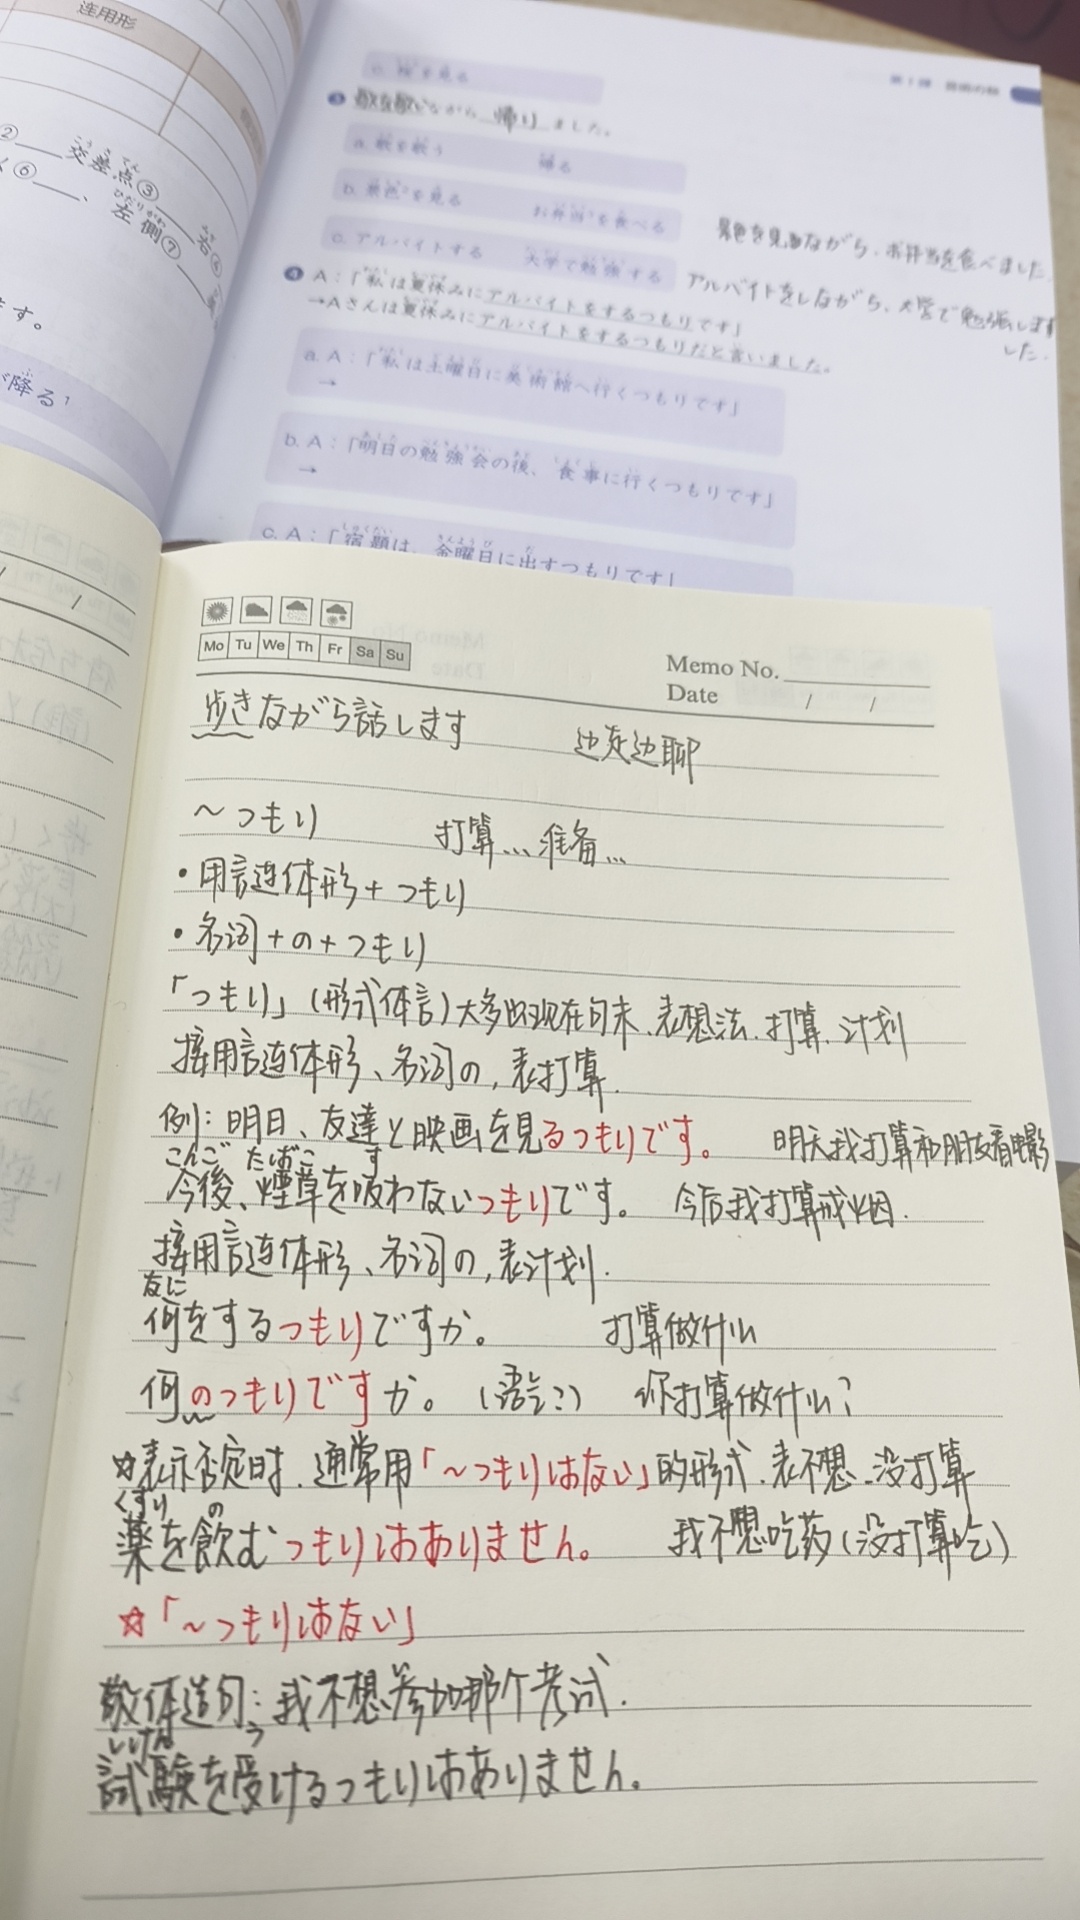 连用形
②＿＿交差点③＿＿右④
く⑥＿＿、左側⑦＿＿
ます。
が降る¹
❸ 歌を歌いながら 帰りました。
a. 歌を歌う 帰る
b. 景色²を見る お弁当³を食べる
c. アルバイトする 大学で勉強する
景色を見ながら、お弁当を食べました
アルバイトをしながら、大学で勉強しま
した.
❹ A：「私は夏休みにアルバイトをするつもりです」
→Aさんは夏休みにアルバイトをするつもりだと言いました。
a. A：「私は土曜日に美術館へ行くつもりです」
→
b. A：「明日の勉強会の後、食事に行くつもりです」
→
c. A：「宿題は、金曜日に出すつもりです」
Mo Tu We Th Fr Sa Su
Memo No.
Date / /
歩きながら話します 边走边聊
～つもり 打算…准备…
・用言連体形+つもり
・名词+の+つもり
「つもり」(形式体言)大多出现在句末、表想法、打算、计划
接用言連体形、名词の, 表打算.
例: 明日、友達と映画を見るつもりです。 明天我打算和朋友看电影
こんご たばこ す
今後、煙草を吸わないつもりです。 今后我打算戒烟.
接用言連体形、名词の, 表计划.
なに
何をするつもりですか。 打算做什么
何のつもりですか。 你打算做什么?
☆表示否定时、通常用「～つもりはない」的形式、表不想、没打算
くすり の
薬を飲むつもりはありません。 我不想吃药(没打算吃)
☆「～つもりはない」
敬体造句: 我不想参加那个考试.
しけん う
試験を受けるつもりはありません。